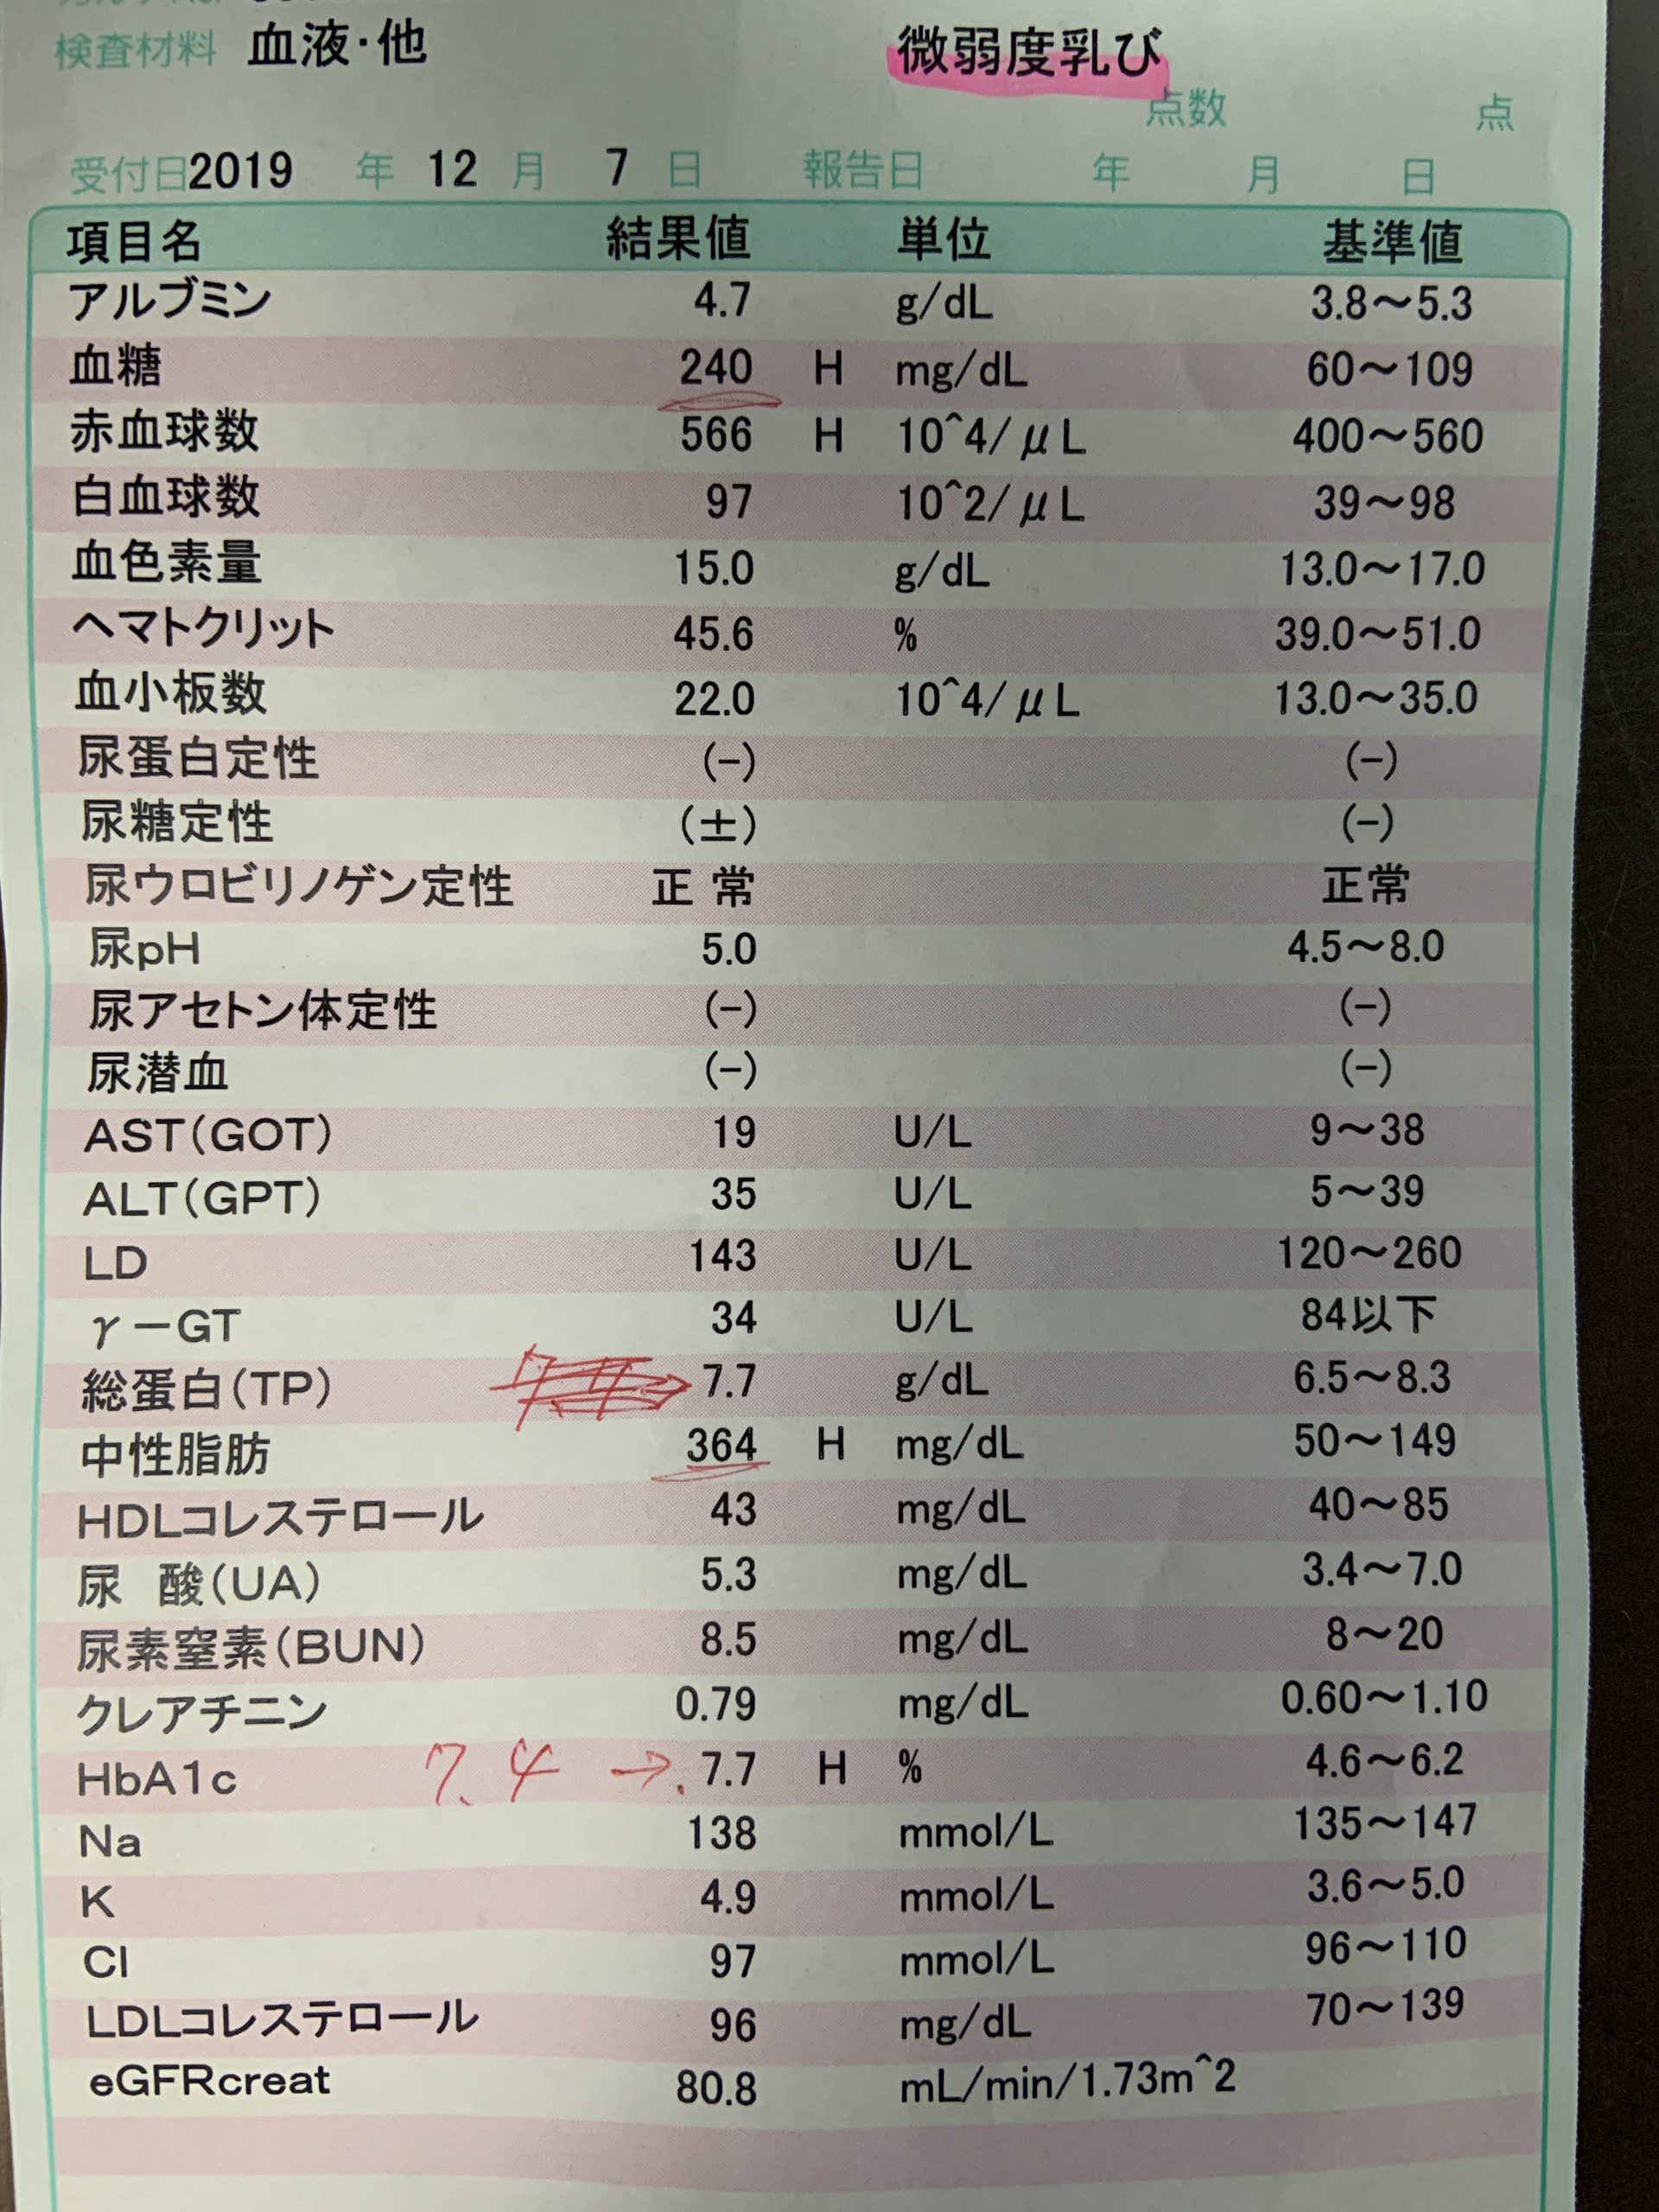 検査材料 血液・他 微弱度乳び
点数 点
受付日2019 年 12 月 7 日 報告日 年 月 日
項目名 結果値 単位 基準値
アルブミン 4.7 g/dL 3.8～5.3
血糖 240 H mg/dL 60～109
赤血球数 566 H 10^4/μL 400～560
白血球数 97 10^2/μL 39～98
血色素量 15.0 g/dL 13.0～17.0
ヘマトクリット 45.6 % 39.0～51.0
血小板数 22.0 10^4/μL 13.0～35.0
尿蛋白定性 (-) (-)
尿糖定性 (±) (-)
尿ウロビリノゲン定性 正 常 正常
尿pH 5.0 4.5～8.0
尿アセトン体定性 (-) (-)
尿潜血 (-) (-)
AST(GOT) 19 U/L 9～38
ALT(GPT) 35 U/L 5～39
LD 143 U/L 120～260
γ－GT 34 U/L 84以下
総蛋白(TP) 7.7 g/dL 6.5～8.3
中性脂肪 364 H mg/dL 50～149
HDLコレステロール 43 mg/dL 40～85
尿 酸(UA) 5.3 mg/dL 3.4～7.0
尿素窒素(BUN) 8.5 mg/dL 8～20
クレアチニン 0.79 mg/dL 0.60～1.10
HbA1c 7.4 → 7.7 H % 4.6～6.2
Na 138 mmol/L 135～147
K 4.9 mmol/L 3.6～5.0
Cl 97 mmol/L 96～110
LDLコレステロール 96 mg/dL 70～139
eGFRcreat 80.8 mL/min/1.73m^2